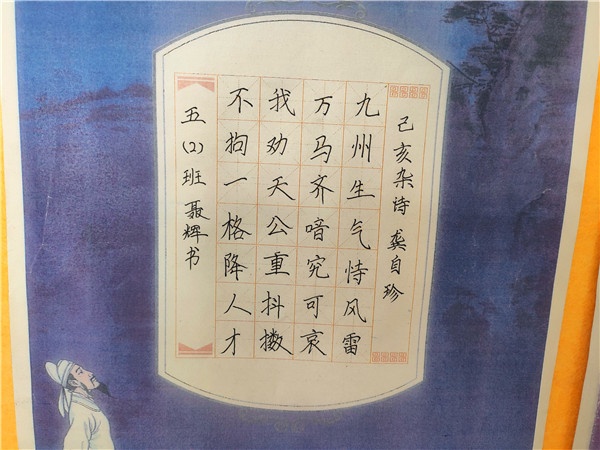 己亥杂诗 龚自珍
九州生气恃风雷
万马齐喑究可哀
我劝天公重抖擞
不拘一格降人才
五(2)班 聂辉书